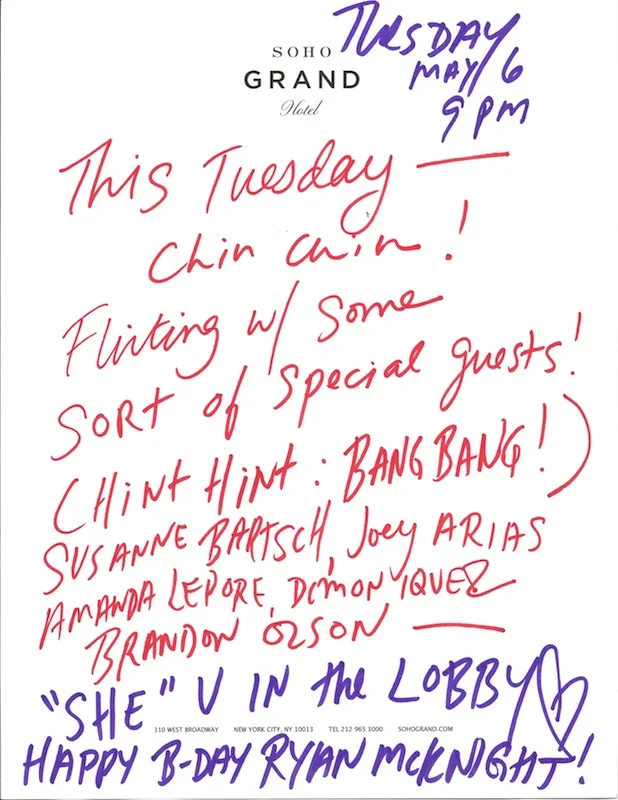 TUESDAY
MAY 6
9 PM
SOHO
GRAND
Hotel
This Tuesday —
Chin Chin!
Flirting w/ Some
SORT of Special guests!
(HiNT HiNT: BANG BANG!)
SUSANNE BARTSCH, Joey ARIAS
AMANDA LEPORE, DEMON IQUEZ
BRANDON OLSON —
"SHE" U IN the LOBBY
310 WEST BROADWAY NEW YORK CITY, NY 10013 TEL 212 965 3000 SOHOGRAND.COM
HAPPY B-DAY RYAN McKNIGHT!